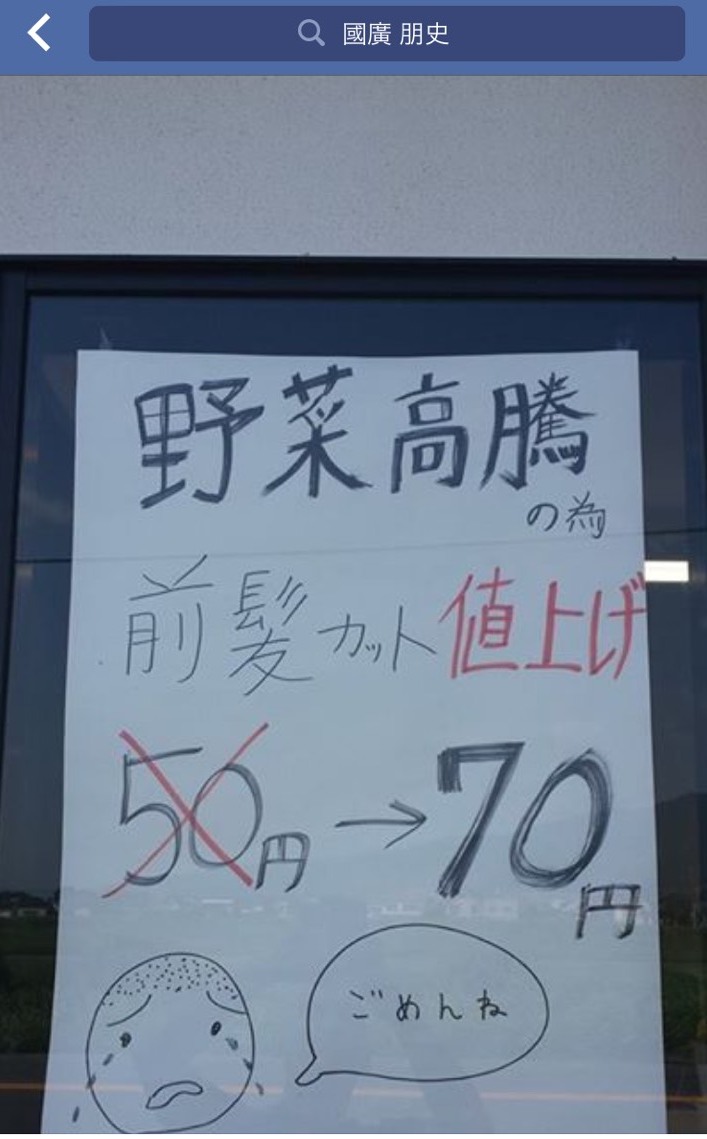 國廣 朋史
野菜高騰
の為
前髪カット値上げ
50円→70円
ごめんね